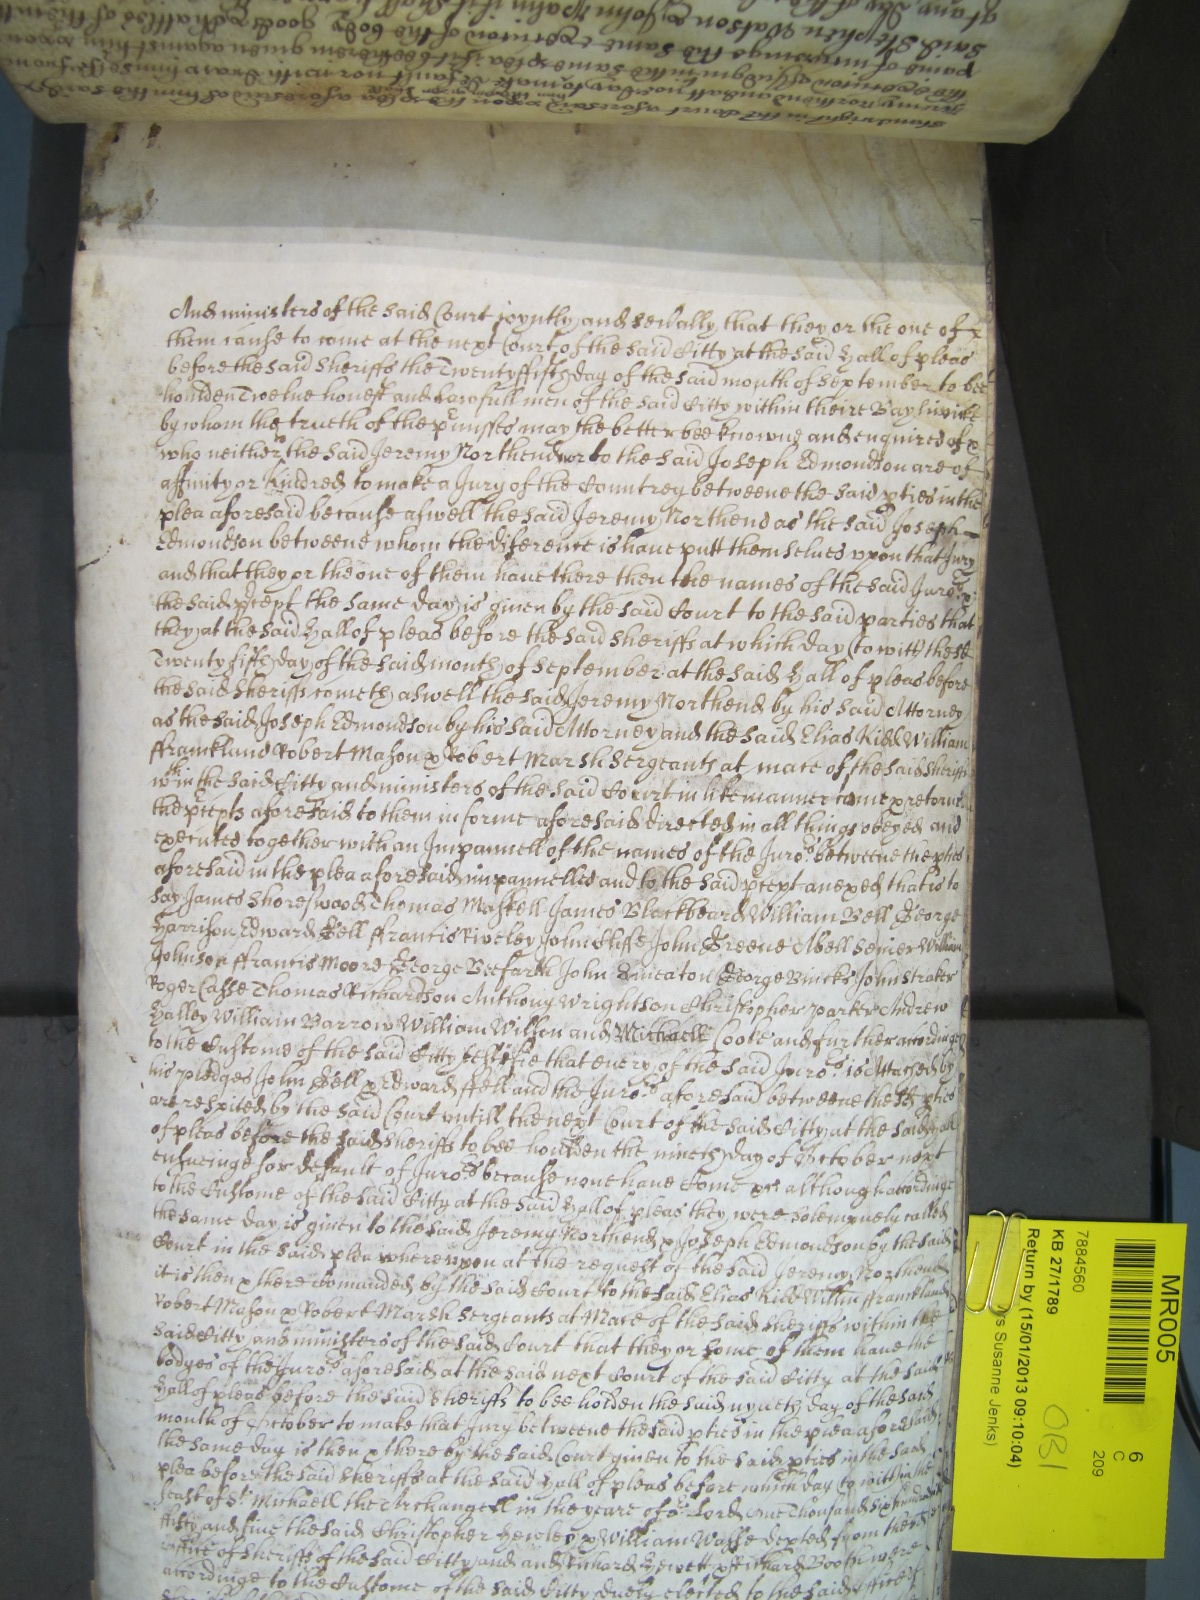 And ministers of the said Court joyntly and seu'ally that they or the one of
them cause to come at the next Court of the said Citty at the said Hall of pleas
before the said Sheriffs the Twenty ffifth day of the said month of September to bee
houlden Twelue honest and Lawfull men of the said Citty within theire Bayliwick
by whom the trueth of the p'misses may the better bee knowne and enquired of &
who neither the said Jeremy Northend nor to the said Joseph Edmondson are of
affinity or Kindred to make a Jury of the Countrey betweene the said pties in the
plea aforesaid because aswell the said Jeremy Northend as the said Joseph
Edmondson betweene whom the diference is haue putt themselues vpon that Jury
and that they or the one of them haue there then the names of the said Juro.rs &
the said p'cept the same day is given by the said Court to the said parties that
they at the said Hall of pleas before the said Sheriffs at which day (to witt) the sd
Twenty fifth day of the said month of September at the said Hall of pleas before
the said Sheriffs cometh aswell the said Jeremy Northend by his said Attorney
as the said Joseph Edmondson by his said Attorney and the said Elias Kidd William
ffranckland Robert Mason & Robert Marsh Sergeants at mace of the said Sheriffs
w'thin the said Citty and ministers of the said Court in like manner come & retorne
the p'cepts aforesaid to them in forme aforesaid directed in all things obeyed and
executed together with an Impannell of the names of the Juro.rs betweene the pties
aforesaid in the plea aforesaid impannelled and to the said p'cept anexed that is to
say James Shoreswood Thomas Maskell James Blackbeard William Bell George
Harrison Edward Bell ffrancis Riveley John Cliffe John Greene Abell Semer William
Johnson ffrancis Moore George Beefarth John Emeaton George Bincks John Straker
Roger Casse Thomas Richardson Anthony Wrightson Christopher Parker Andrew
Halley William Barrow William Wilson and Michaell Coole and further accordinge
to the Custome of the said Citty testifie that euery of the said Juro.rs is Attached by
his pledges John Bell & Edward ffell and the Juro.rs aforesaid betweene the sd pties
are respited by the said Court vntill the next Court of the said Citty at the said Hall
of pleas before the said Sheriffs to bee houlden the nineth day of October next
ensueinge for default of Juro.rs because none haue Come &c although accordinge
to the Custome of the said Citty at the said Hall of pleas they were solempnely called
the same day is given to the said Jeremy Northend & Joseph Edmondson by the said
Court in the said plea wherevpon at the request of the said Jeremy Northend
it is then & there Comanded by the said Court to the said Elias Kidd Willm ffranckland
Robert Mason & Robert Marsh Sergeants at Mace of the said Sheriffs within the
said Citty and ministers of the said Court that they or some of them haue the
bodyes of the Juro.rs aforesaid at the said next Court of the said Citty at the said
Hall of pleas before the said Sheriffs to bee holden the said nyneth day of the said
month of October to make that Jury betweene the said pties in the plea aforesaid
the same day is then & there by the said Court given to the said pties in the said
plea before the said Sheriffs at the said Hall of pleas before which day (to witt) in the
feast of St Michaell the Archangell in the yeare of or Lord one Thousand six hundred
ffifty and fiue the said Christopher Hewley & William Wasse dep'ted from their
office of Sheriffs of the said Citty and Richard Hewett & Richard Booth were
accordinge to the Custome of the said Citty duely elected to the said Office of
MR005
6
C
209
7884560
KB 27/1789
Return by (15/01/2013 09:10:04)
Susanne Jenks)